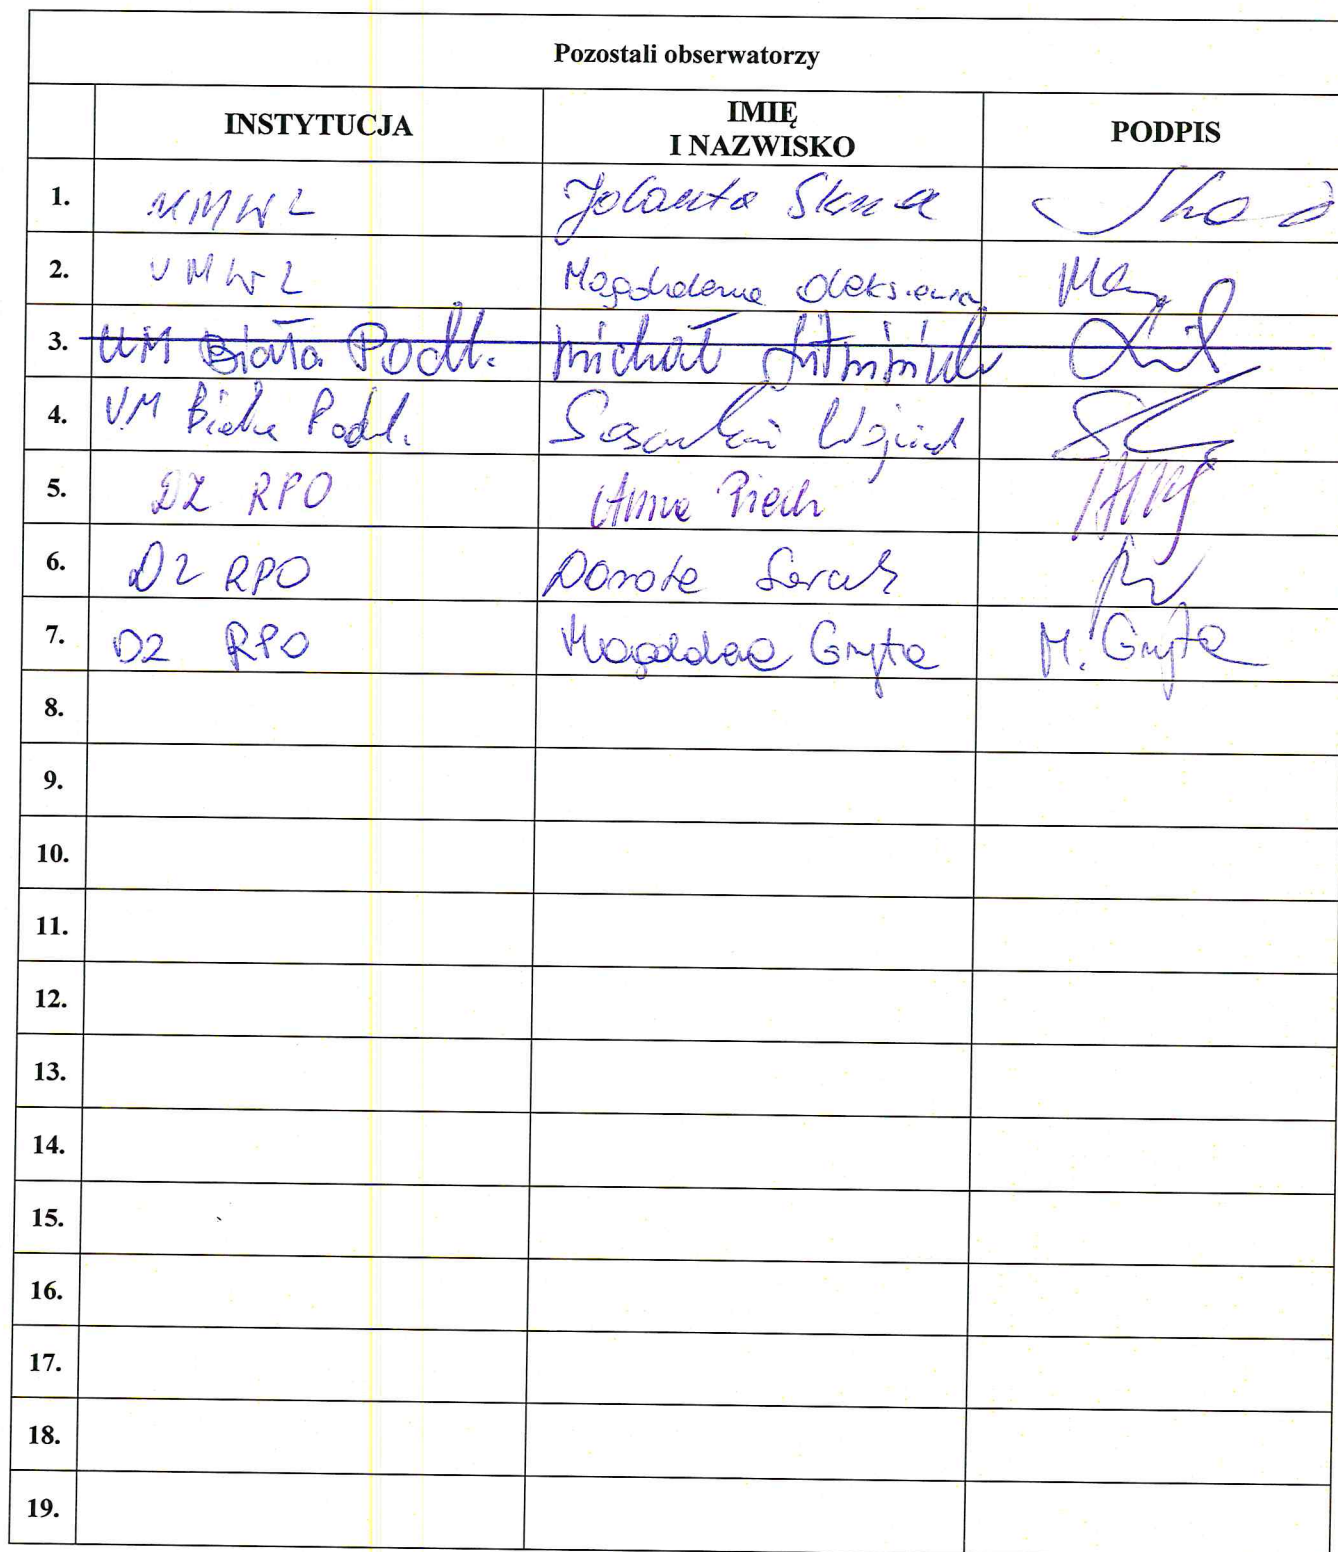 Pozostali obserwatorzy
INSTYTUCJA IMIĘ I NAZWISKO PODPIS
1. UMWL Jolanta
2. UMWL Magdalena
3. UM Biała Podl. Michał
4. UM Biała Podl. Wojciech
5. DZ RPO Anna Piech
6. DZ RPO Dorota
7. DZ RPO Magdalena Gryta M. Gryta
8.
9.
10.
11.
12.
13.
14.
15.
16.
17.
18.
19.